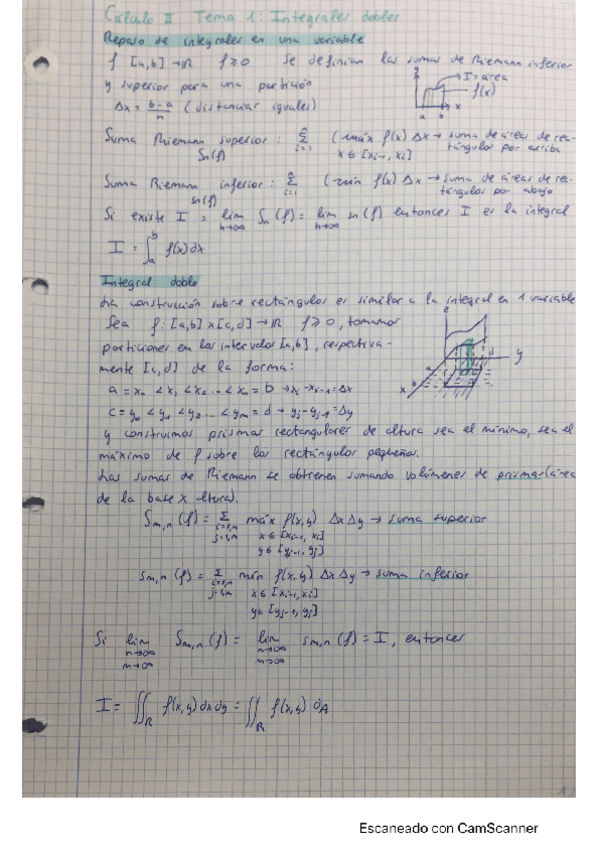 Cálculo II Tema 1: Integrales dobles
Repaso de integrales en una variable
f [a,b] → ℝ f ⩾ 0 Se definían las sumas de Riemann inferior
y superior para una partición
I = área
f(x)
a b x
Δx = (b-a)/n (distancias iguales)
Suma Riemann superior: Σ i=1 n (máx f(x) Δx → suma de áreas de rec-
Sn(f) x ∈ [xi-1, xi] tángulos por arriba
Suma Riemann inferior: Σ i=1 n (mín f(x) Δx → suma de áreas de rec-
sn(f) tángulos por abajo
Si existe I = lim n→∞ Sn(f) = lim n→∞ sn(f) entonces I es la integral
I = ∫ a b f(x) dx
Integral doble
La construcción sobre rectángulos es similar a la integral en 1 variable
Sea f: [a,b] x [c,d] → ℝ f ⩾ 0, tomamos
particiones en los intervalos [a,b], respectiva-
mente [c,d] de la forma:
z
y
x
a = x₀ < x₁ < x₂ ... < xn = b → xi - xi-1 = Δx
c = y₀ < y₁ < y₂ ... < ym = d → yj - yj-1 = Δy
y construimos prismas rectangulares de altura sea el mínimo, sea el
máximo de f sobre los rectángulos pequeños.
Las sumas de Riemann se obtienen sumando volúmenes de prismas (área
de la base x altura).
Sm,n (f) = Σ máx f(x,y) Δx Δy → suma superior
i=1,n x ∈ [xi-1, xi]
j=1,m y ∈ [yj-1, yj]
sm,n (f) = Σ mín f(x,y) Δx Δy → suma inferior
i=1,n x ∈ [xi-1, xi]
j=1,m y ∈ [yj-1, yj]
Si lim n→∞ m→∞ Sm,n (f) = lim n→∞ m→∞ sm,n (f) = I, entonces
I = ∬R f(x,y) dx dy = ∬R f(x,y) dA
1
Escaneado con CamScanner